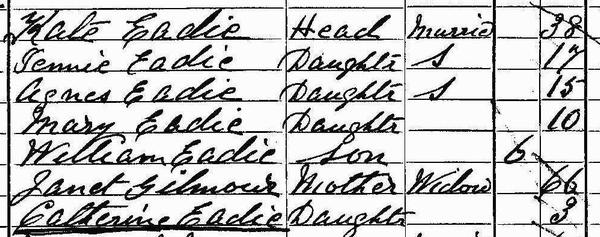 Kate Eadie Head Married 38
Jennie Eadie Daughtr S 17
Agnes Eadie Daughtr S 15
Mary Eadie Daughtr 10
William Eadie Son 6
Janet Gilmour Mother Widow 66
Catherine Eadie Daughtr 3